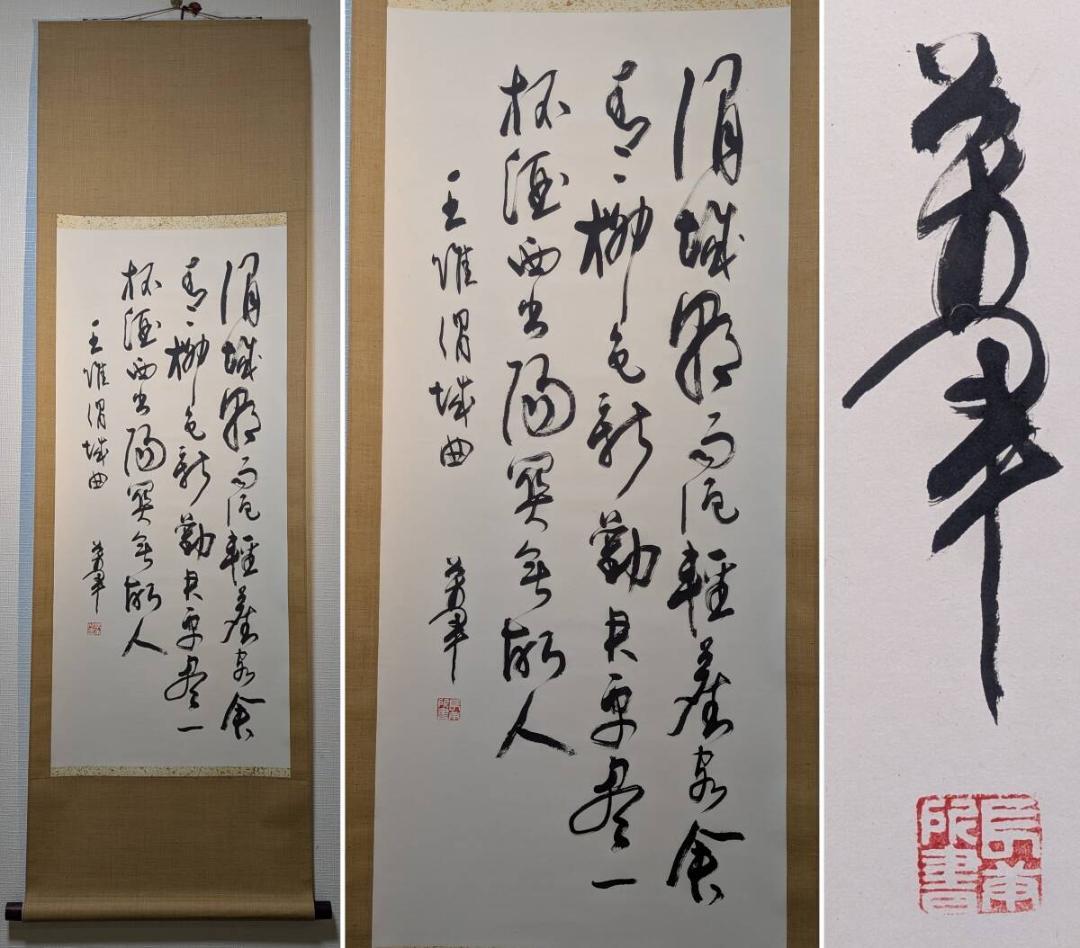 渭城朝雨浥輕塵客舍
青々柳色新勸君更盡一
杯酒西出陽關無故人
王維渭城曲
渭城朝雨浥輕塵客舍
青々柳色新勸君更盡一
杯酒西出陽關無故人
王維渭城曲